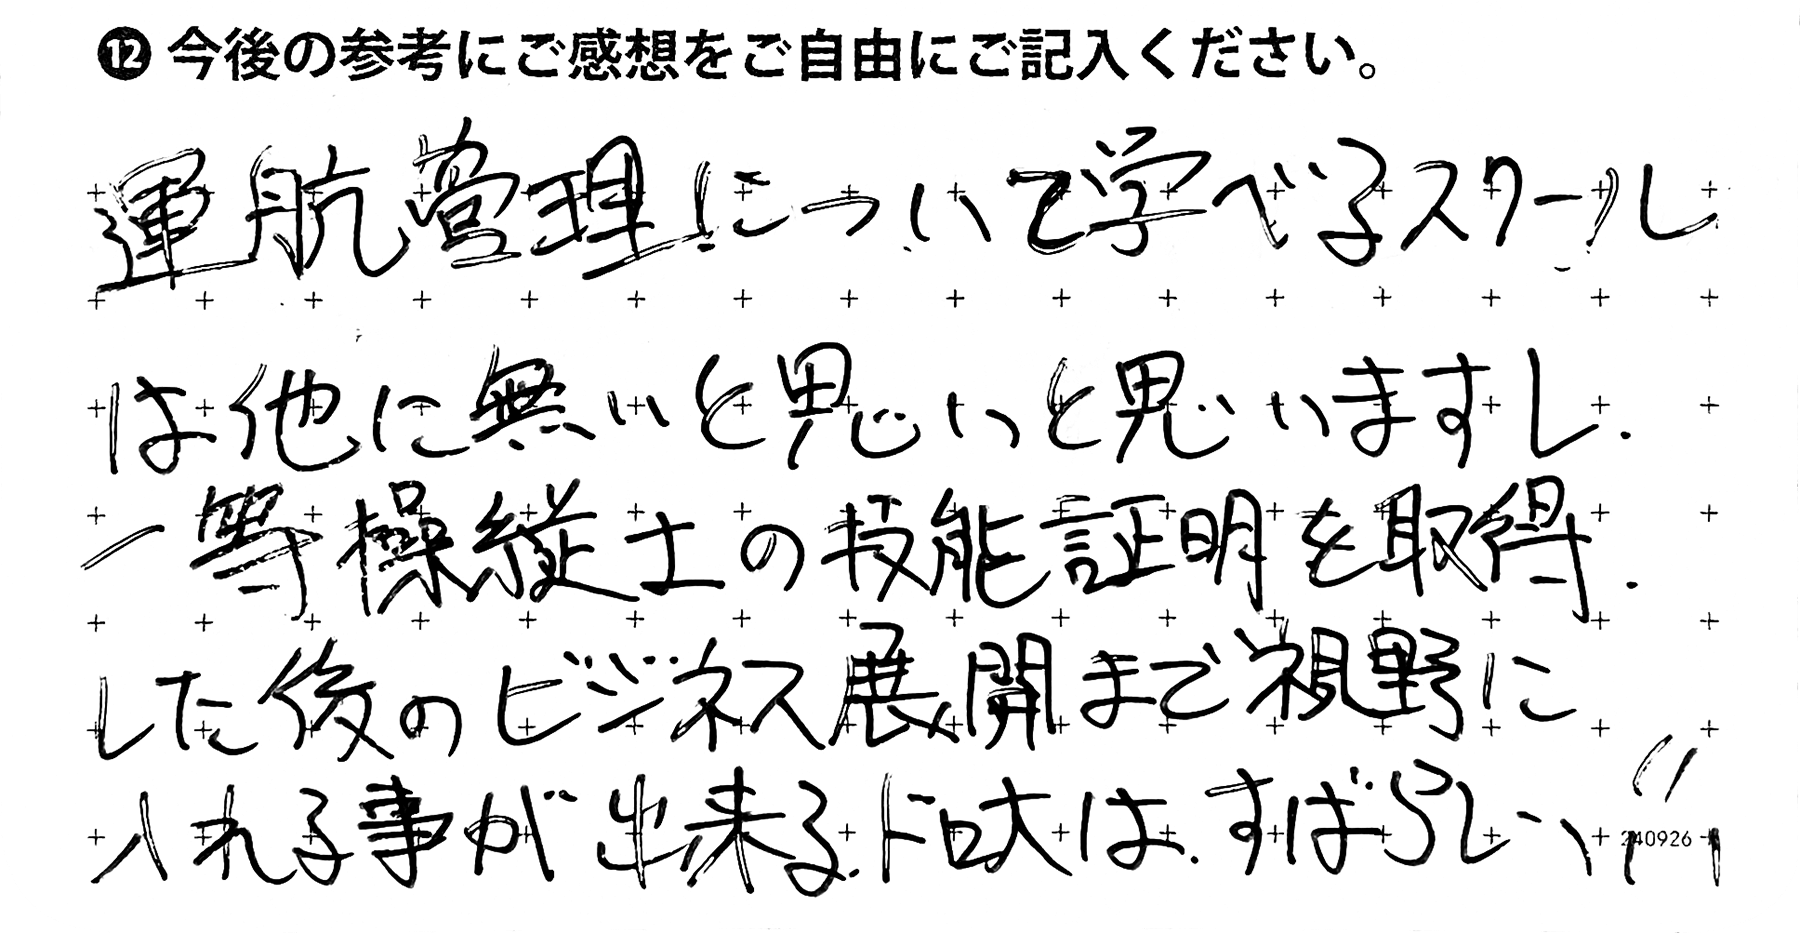 ⓬ 今後の参考にご感想をご自由にご記入ください。
運航管理についてで学べるスクール
は他に無いと思いと思いますし.
一等操縦士の技能証明を取得.
した後のビジネス展開まで視野に
入れる事が出来る.ドロ大は.すばらしい!!
240926